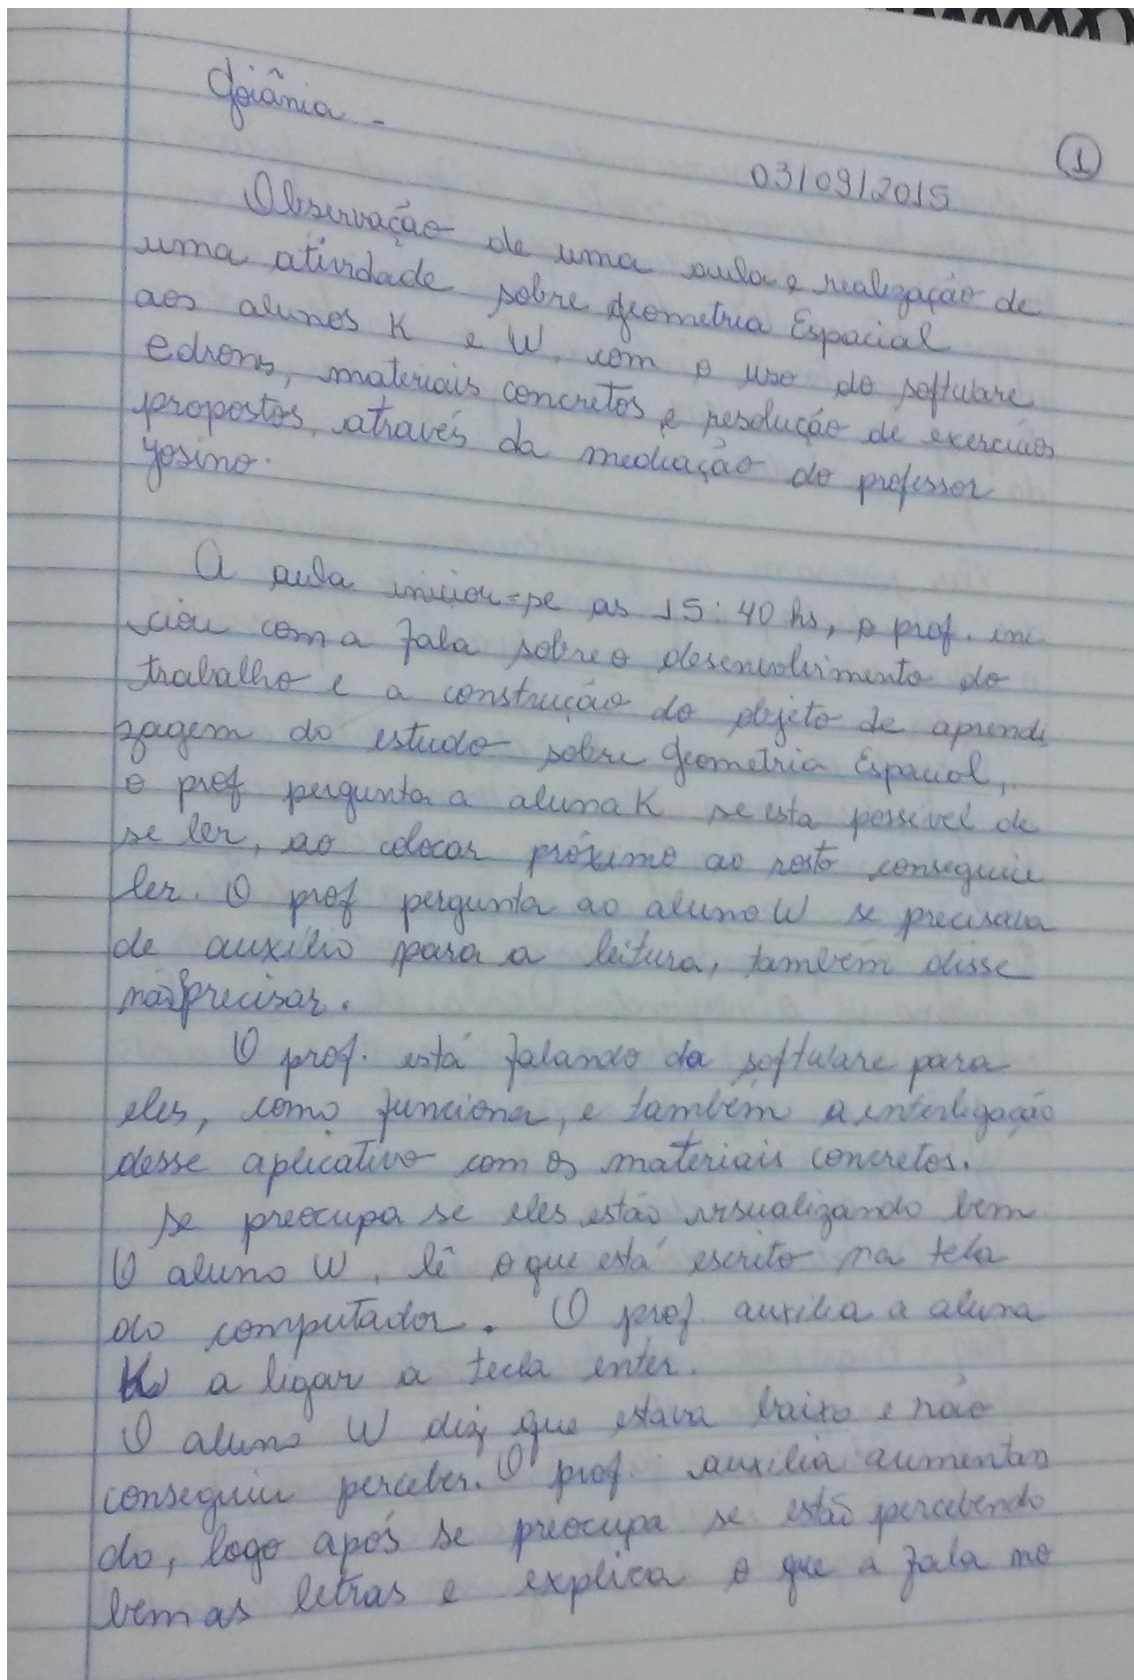 Goiânia -
①
03/09/2015
Observação de uma aula e realização de
uma atividade sobre geometria Espacial
aos alunos K e W, com o uso do software
edrons, materiais concretos e resolução de exercícios
propostos, através da mediação do professor
yosino.
A aula iniciou-se as 15:40 hs, o prof. ini
ciou com a fala sobre o desenvolvimento do
trabalho e a construção do objeto de aprendi
zagem do estudo sobre geometria Espacial,
o prof pergunta a aluna K se esta possivel de
se ler, ao colocar próximo ao rosto conseguiu
ler. O prof pergunta ao aluno W se precisava
de auxílio para a leitura, também disse
não precisar.
O prof. está falando da software para
eles, como funciona, e também a interligação
desse aplicativo com os materiais concretos.
se preocupa se eles estão visualizando bem
O aluno W, lê o que está escrito na tela
do computador. O prof. auxilia a aluna
K a ligar a tecla enter.
O aluno W diz que estava baixo e não
conseguiu perceber. O prof. auxilia aumentan
do, logo após se preocupa se estão percebendo
bem as letras e explica o que a fala no